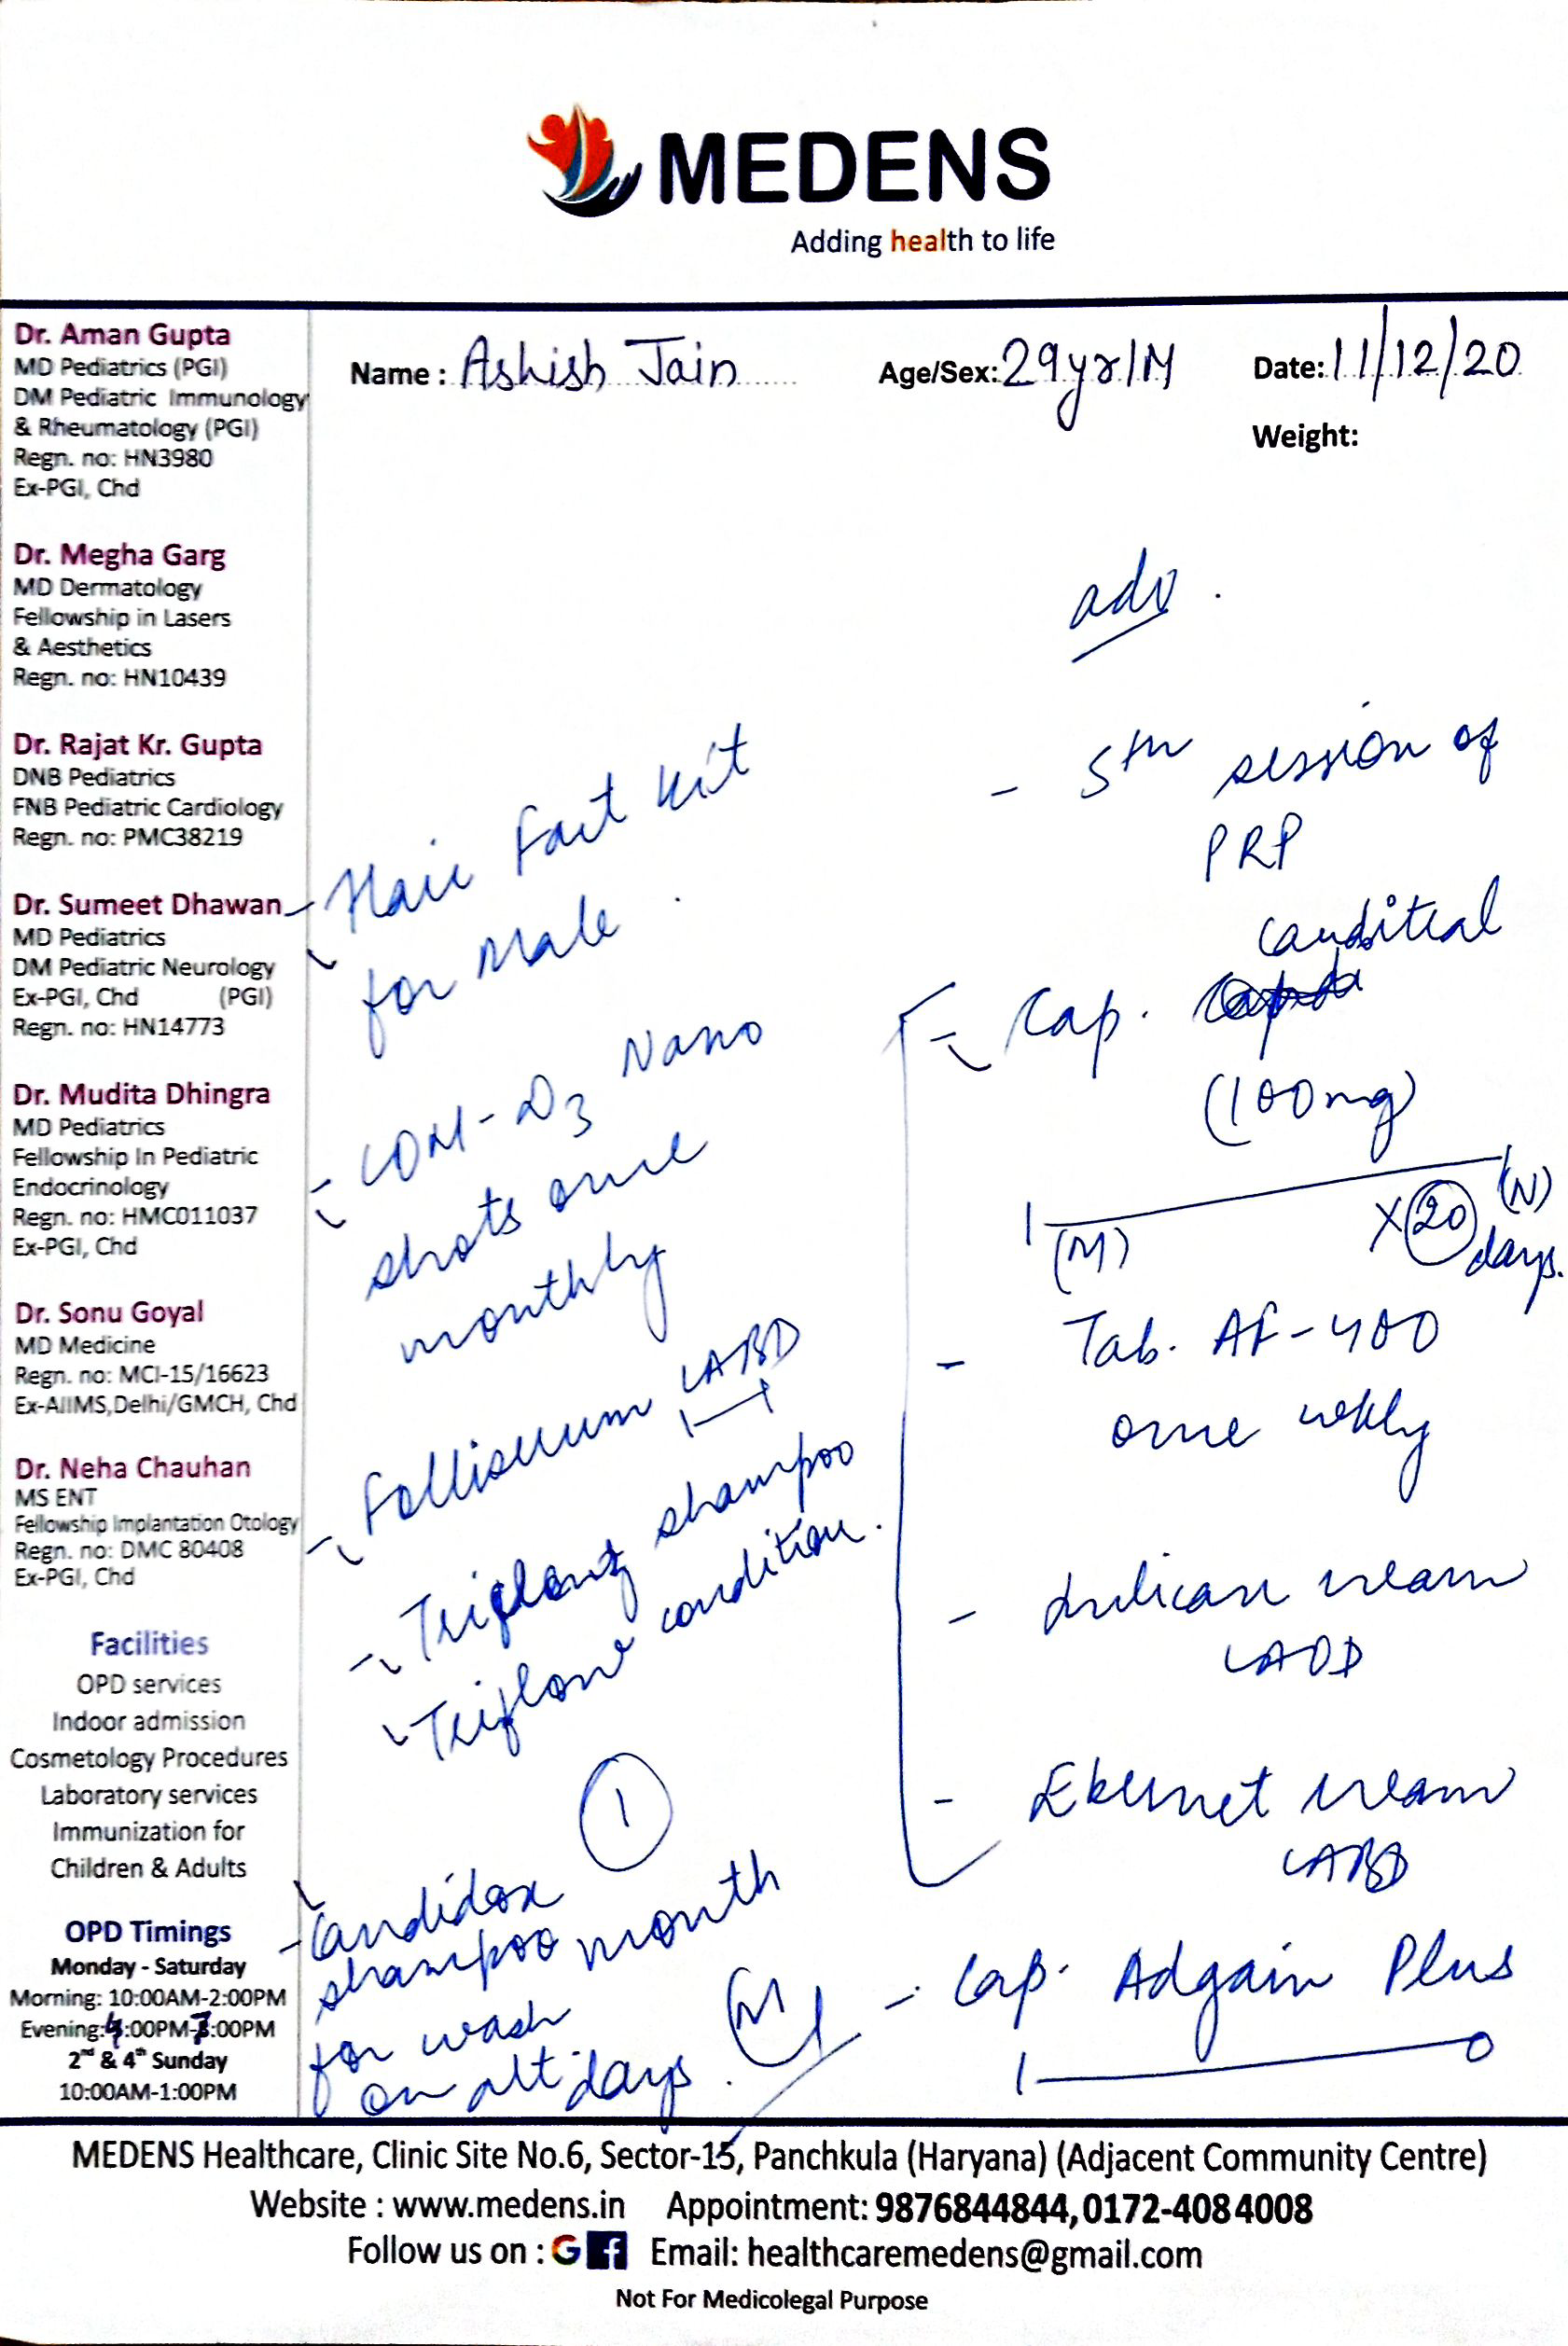 MEDENS
Adding health to life
Dr. Aman Gupta
MD Pediatrics (PGI)
DM Pediatric Immunology
& Rheumatology (PGI)
Regn. no: HN3980
Ex-PGI, Chd
Dr. Megha Garg
MD Dermatology
Fellowship in Lasers
& Aesthetics
Regn. no: HN10439
Dr. Rajat Kr. Gupta
DNB Pediatrics
FNB Pediatric Cardiology
Regn. no: PMC38219
Dr. Sumeet Dhawan
MD Pediatrics
DM Pediatric Neurology
Ex-PGI, Chd (PGI)
Regn. no: HN14773
Dr. Mudita Dhingra
MD Pediatrics
Fellowship In Pediatric
Endocrinology
Regn. no: HMC011037
Ex-PGI, Chd
Dr. Sonu Goyal
MD Medicine
Regn. no: MCI-15/16623
Ex-AIIMS,Delhi/GMCH, Chd
Dr. Neha Chauhan
MS ENT
Fellowship Implantation Otology
Regn. no: DMC 80408
Ex-PGI, Chd
Facilities
OPD services
Indoor admission
Cosmetology Procedures
Laboratory services
Immunization for
Children & Adults
OPD Timings
Monday - Saturday
Morning: 10:00AM-2:00PM
Evening:4:00PM-7:00PM
2nd & 4th Sunday
10:00AM-1:00PM
Name : Ashish Jain Age/Sex: 29yr/M Date: 11/12/20
Weight:
adv.
- 5th session of
PRP
canditral
- Cap.
(100mg)
1 (M) (N)
x 20 days.
- Tab. AF-400
once wkly
- cream
LAOD
- Ebernet cream
LABD
- Cap. Adgain Plus
1 0
- Hair Fact Kit
for Male.
- COM-D3 Nano
shots once
monthly
- Folliserum LABD
1 1
- shampoo
- Triflow condition.
1
- Candidox
shampoo month
for wash
on alt days.
MEDENS Healthcare, Clinic Site No.6, Sector-15, Panchkula (Haryana) (Adjacent Community Centre)
Website : www.medens.in Appointment: 9876844844, 0172-4084008
Follow us on : G f Email: healthcaremedens@gmail.com
Not For Medicolegal Purpose